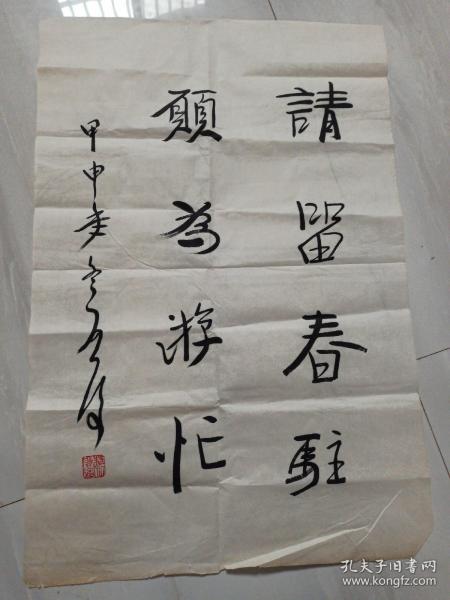 請留春駐
願為游忙
甲申年冬
孔夫子旧书网
www.kongfz.com